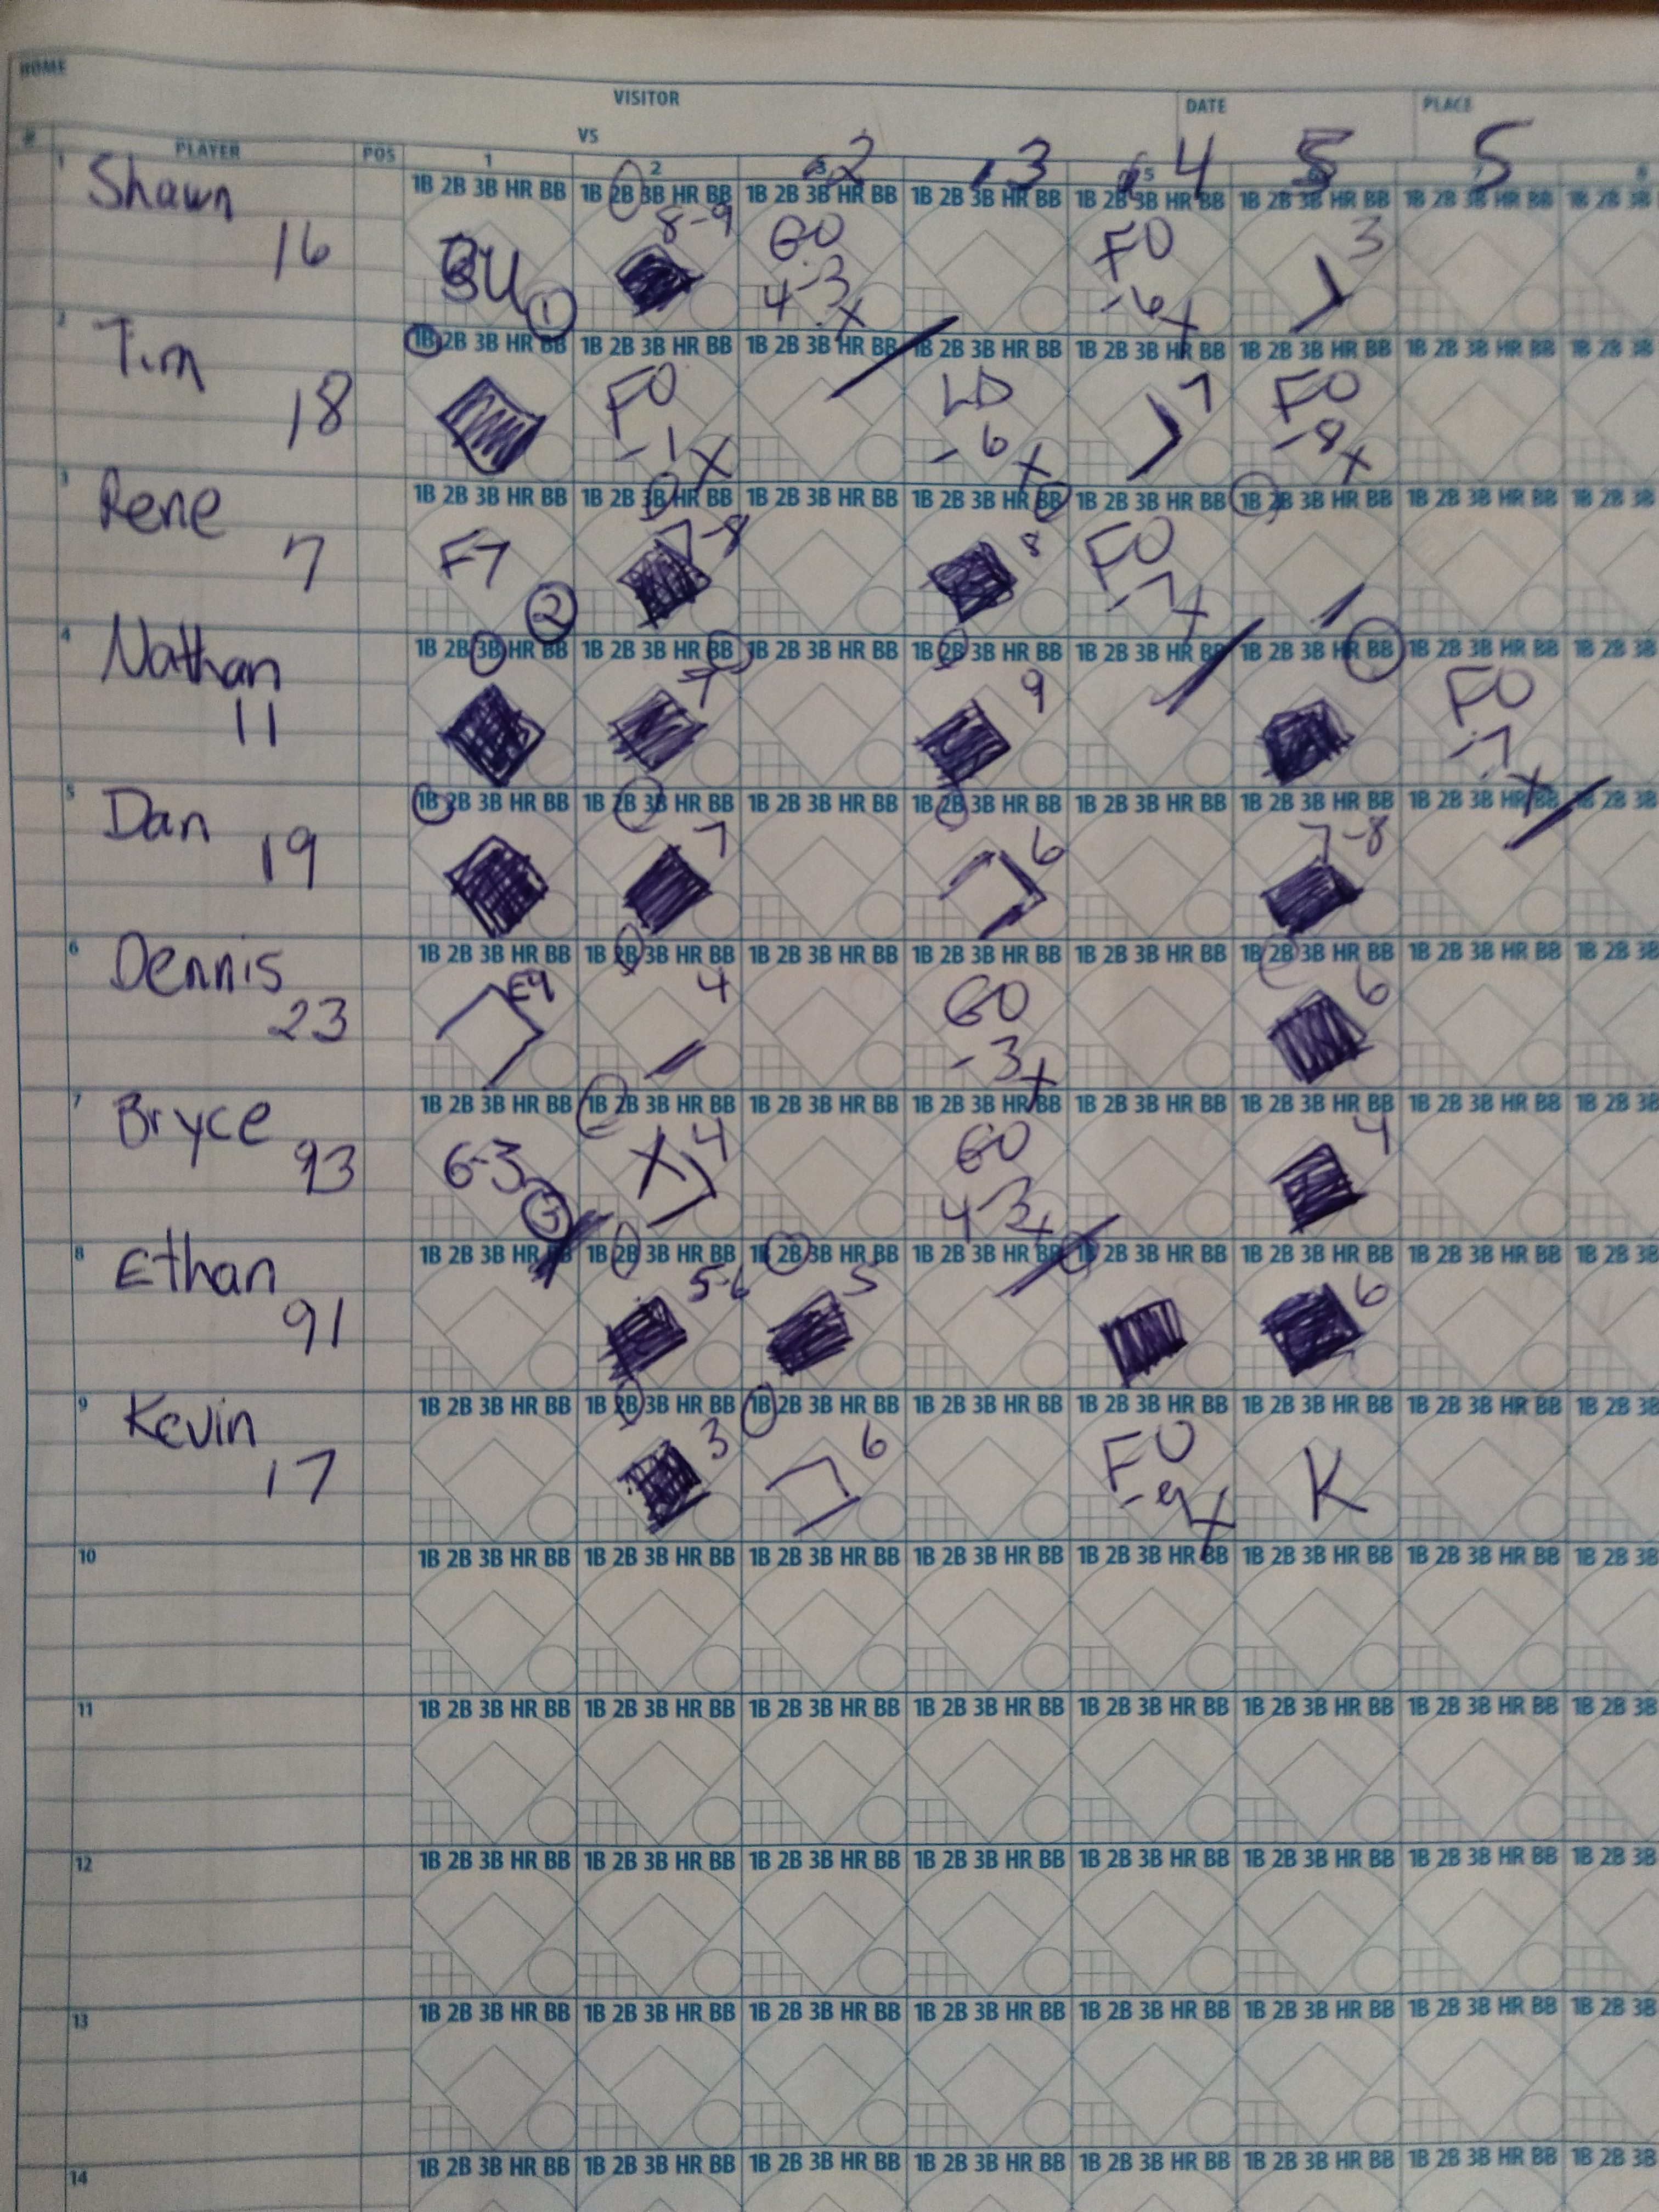 HOME
VISITOR
DATE
PLACE
VS
# PLAYER POS 1 2 2 3 5 4 5 5 8
1 1B 2B 3B HR BB 1B 2B 3B HR BB 1B 2B 3B HR BB 1B 2B 3B HR BB 1B 2B 3B HR BB 1B 2B 3B HR BB 1B 2B 3B HR BB 1B 2B 3B
Shawn 8-9 GO FO 3
16 1 4-3 X -6 X
2 1B 2B 3B HR BB 1B 2B 3B HR BB 1B 2B 3B HR BB 1B 2B 3B HR BB 1B 2B 3B HR BB 1B 2B 3B HR BB 1B 2B 3B HR BB 1B 2B 3B
Tim FO LD 7 FO
18 -1 X -6 X -8 X
3 1B 2B 3B HR BB 1B 2B 3B HR BB 1B 2B 3B HR BB 1B 2B 3B HR BB 1B 2B 3B HR BB 1B 2B 3B HR BB 1B 2B 3B HR BB 1B 2B 3B
Rene F7 7-8 8 FO
7 2 -7 X
4 1B 2B 3B HR BB 1B 2B 3B HR BB 1B 2B 3B HR BB 1B 2B 3B HR BB 1B 2B 3B HR BB 1B 2B 3B HR BB 1B 2B 3B HR BB 1B 2B 3B
Nathan 9 FO
11 -7 X
5 1B 2B 3B HR BB 1B 2B 3B HR BB 1B 2B 3B HR BB 1B 2B 3B HR BB 1B 2B 3B HR BB 1B 2B 3B HR BB 1B 2B 3B HR BB 2B 3B
Dan 7 6 7-8
19
6 1B 2B 3B HR BB 1B 2B 3B HR BB 1B 2B 3B HR BB 1B 2B 3B HR BB 1B 2B 3B HR BB 1B 2B 3B HR BB 1B 2B 3B HR BB 1B 2B 3B
Dennis 4 GO 6
23 -3 X
7 1B 2B 3B HR BB 1B 2B 3B HR BB 1B 2B 3B HR BB 1B 2B 3B HR BB 1B 2B 3B HR BB 1B 2B 3B HR BB 1B 2B 3B HR BB 1B 2B 3B
Bryce 6-3 X 4 GO 4
93 3 4-3 X
8 1B 2B 3B HR BB 1B 2B 3B HR BB 1B 2B 3B HR BB 1B 2B 3B HR BB 1B 2B 3B HR BB 1B 2B 3B HR BB 1B 2B 3B HR BB 1B 2B 3B
Ethan 5-6 5 6
91
9 1B 2B 3B HR BB 1B 2B 3B HR BB 1B 2B 3B HR BB 1B 2B 3B HR BB 1B 2B 3B HR BB 1B 2B 3B HR BB 1B 2B 3B HR BB 1B 2B 3B
Kevin 3 6 FO K
17 -9 X
10 1B 2B 3B HR BB 1B 2B 3B HR BB 1B 2B 3B HR BB 1B 2B 3B HR BB 1B 2B 3B HR BB 1B 2B 3B HR BB 1B 2B 3B HR BB 1B 2B 3B
11 1B 2B 3B HR BB 1B 2B 3B HR BB 1B 2B 3B HR BB 1B 2B 3B HR BB 1B 2B 3B HR BB 1B 2B 3B HR BB 1B 2B 3B HR BB 1B 2B 3B
12 1B 2B 3B HR BB 1B 2B 3B HR BB 1B 2B 3B HR BB 1B 2B 3B HR BB 1B 2B 3B HR BB 1B 2B 3B HR BB 1B 2B 3B HR BB 1B 2B 3B
13 1B 2B 3B HR BB 1B 2B 3B HR BB 1B 2B 3B HR BB 1B 2B 3B HR BB 1B 2B 3B HR BB 1B 2B 3B HR BB 1B 2B 3B HR BB 1B 2B 3B
14 1B 2B 3B HR BB 1B 2B 3B HR BB 1B 2B 3B HR BB 1B 2B 3B HR BB 1B 2B 3B HR BB 1B 2B 3B HR BB 1B 2B 3B HR BB 1B 2B 3B